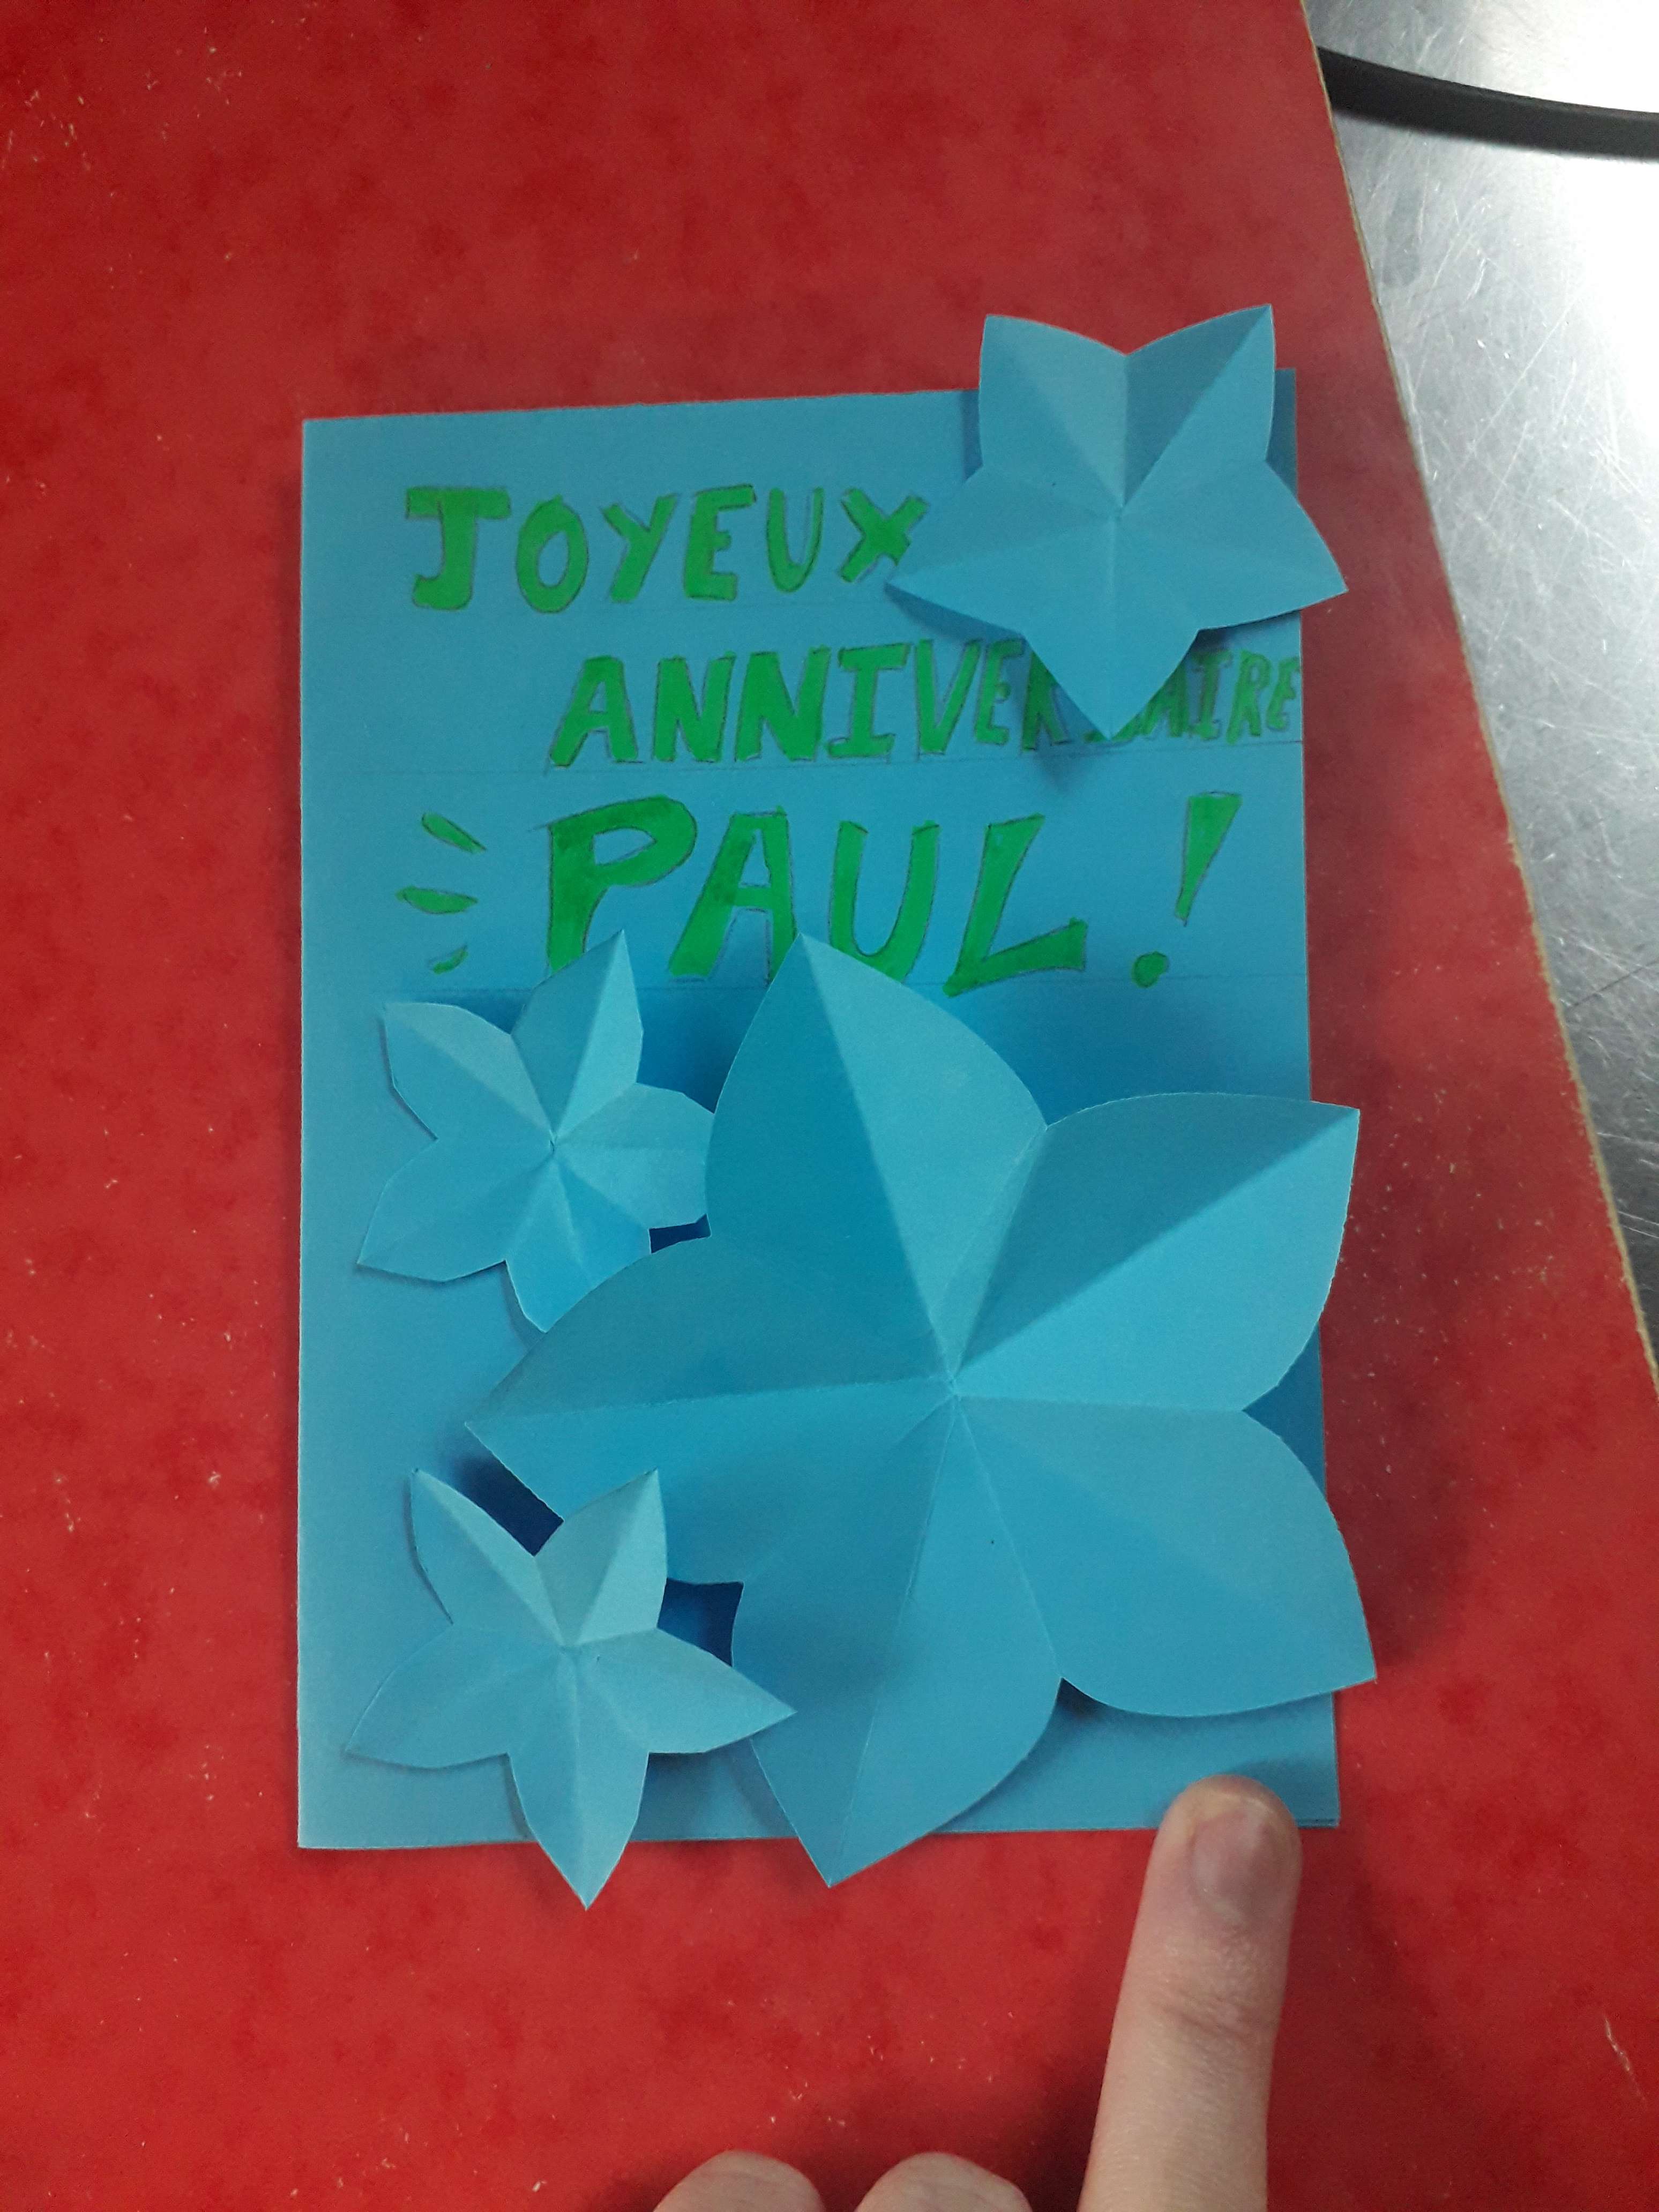 JOYEUX
ANNIVERSAIRE
PAUL!